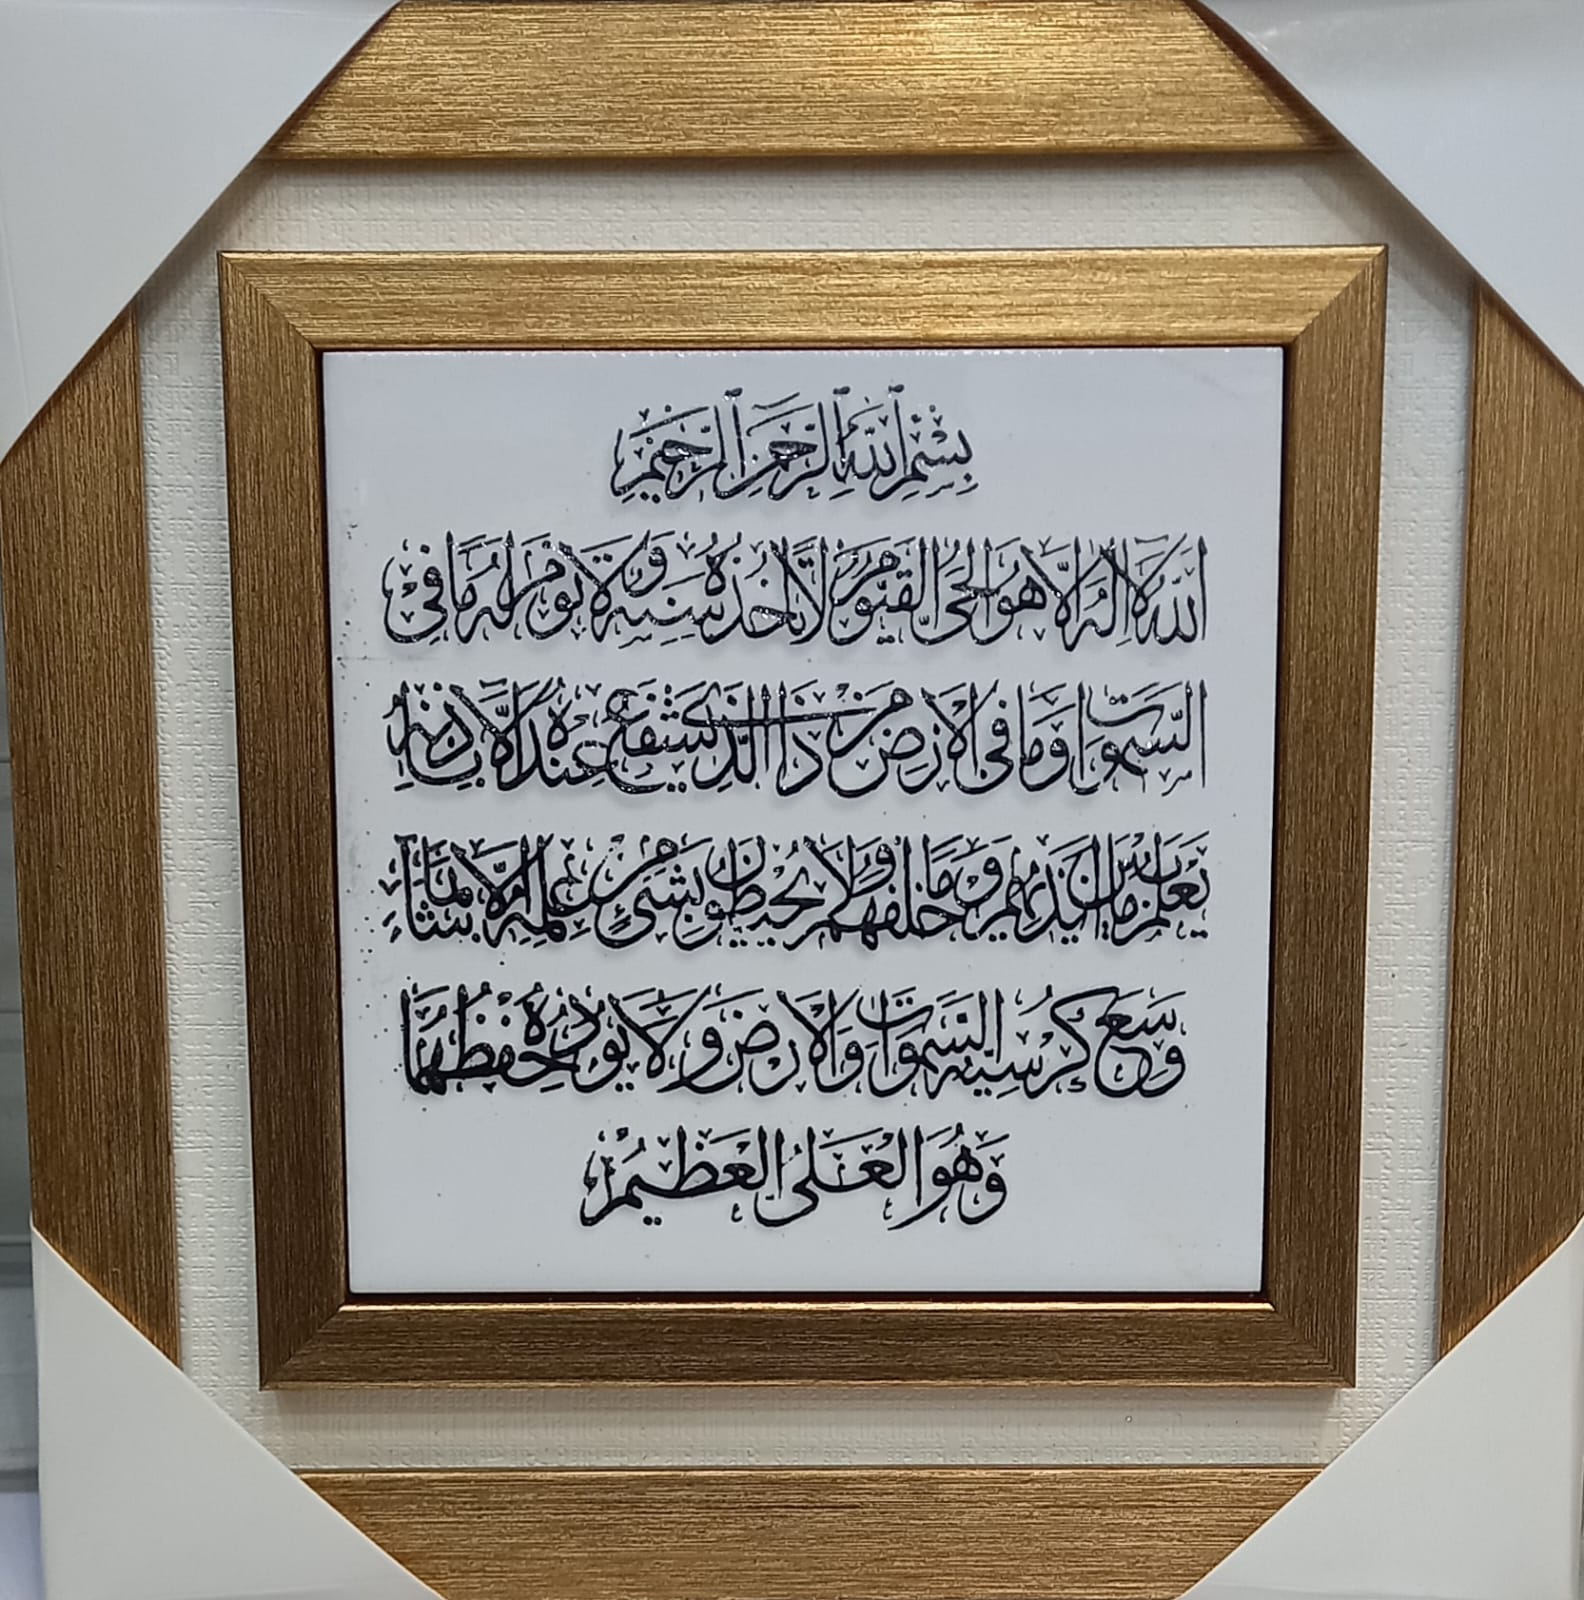 بِسْمِ ٱللَّهِ ٱلرَّحْمَٰنِ ٱلرَّحِيمِ
اللّٰهُ لَا إِلٰهَ إِلَّا هُوَ الْحَيُّ الْقَيُّومُ لَا تَأْخُذُهُ سِنَةٌ وَلَا نَوْمٌ لَهُ مَا فِي
السَّمٰوَاتِ وَمَا فِي الْأَرْضِ مَنْ ذَا الَّذِي يَشْفَعُ عِنْدَهُ إِلَّا بِإِذْنِهِ
يَعْلَمُ مَا بَيْنَ أَيْدِيهِمْ وَمَا خَلْفَهُمْ وَلَا يُحِيطُونَ بِشَيْءٍ مِنْ عِلْمِهِ إِلَّا بِمَا شَاءَ
وَسِعَ كُرْسِيُّهُ السَّمٰوَاتِ وَالْأَرْضَ وَلَا يَؤُدُهُ حِفْظُهُمَا
وَهُوَ الْعَلِيُّ الْعَظِيمُ